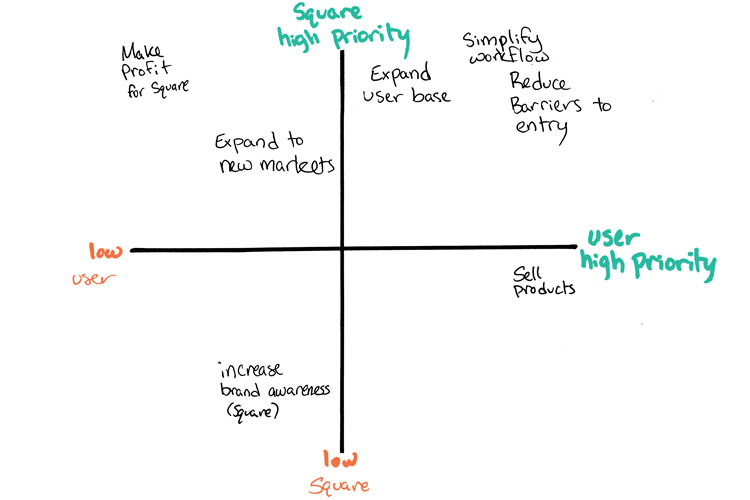 Square
high priority
Make
Profit
for Square
Expand
user base
Simplify
workflow
Reduce
Barriers to
entry
Expand to
new markets
low
user
user
high priority
Sell
products
increase
brand awareness
(Square)
low
Square